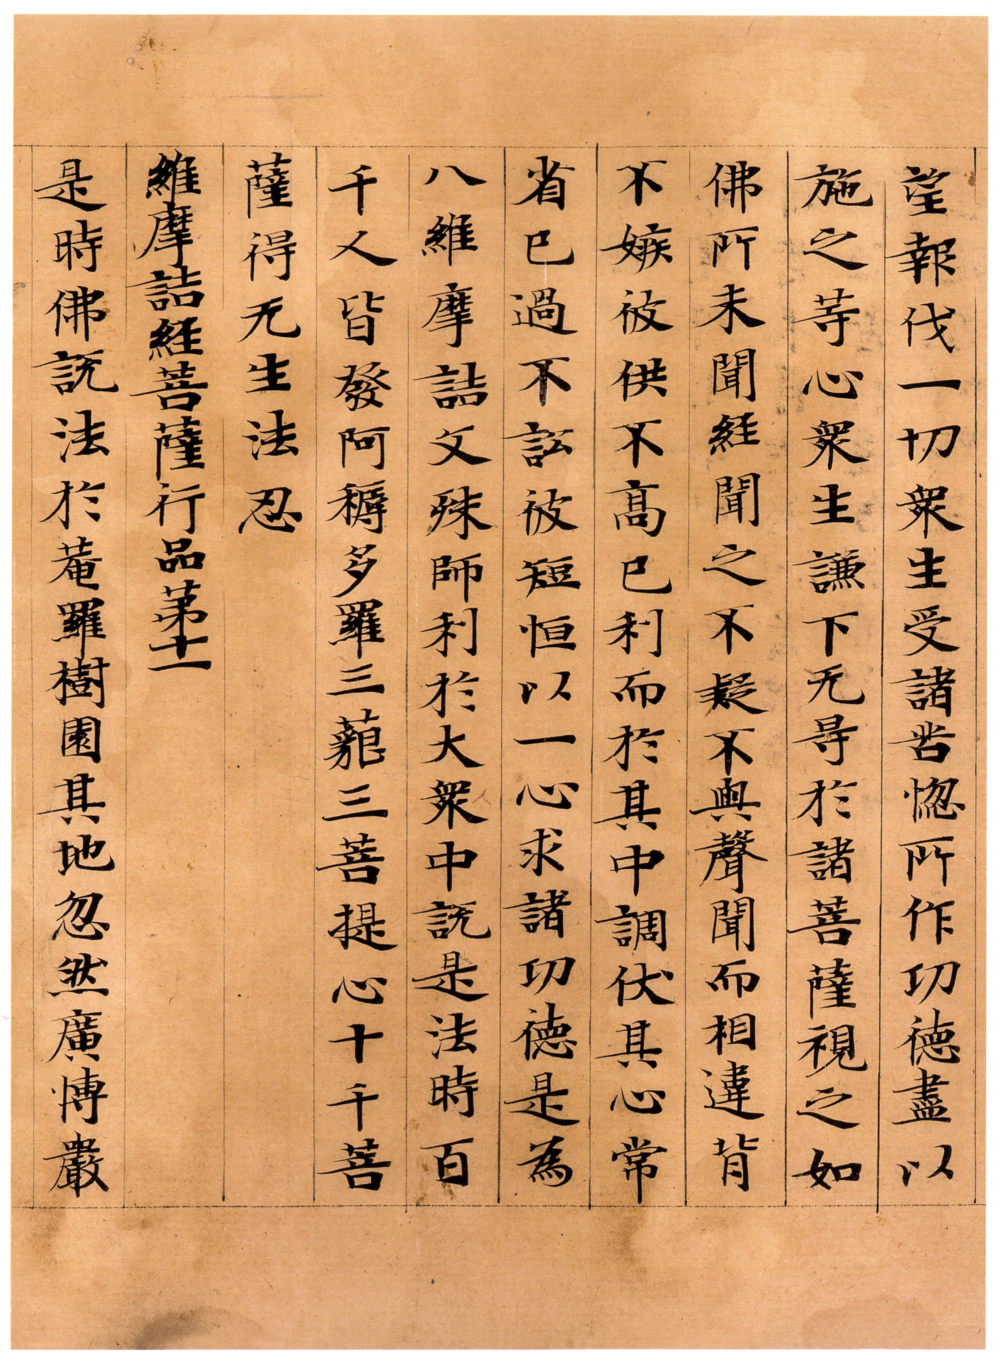 望報伐一切衆生受諸苦惚所作功德盡以
施之等心衆生謙下无㝵於諸菩薩視之如
佛所未聞經聞之不疑不與聲聞而相違背
不嫉彼供不高已利而於其中調伏其心常
省已過不訟彼短恒以一心求諸功德是為
八維摩詰文殊師利於大衆中說是法時百
千人皆發阿耨多羅三藐三菩提心十千菩
薩得无生法忍
維摩詰經菩薩行品第十一
是時佛說法於菴羅樹園其地忽然廣博嚴